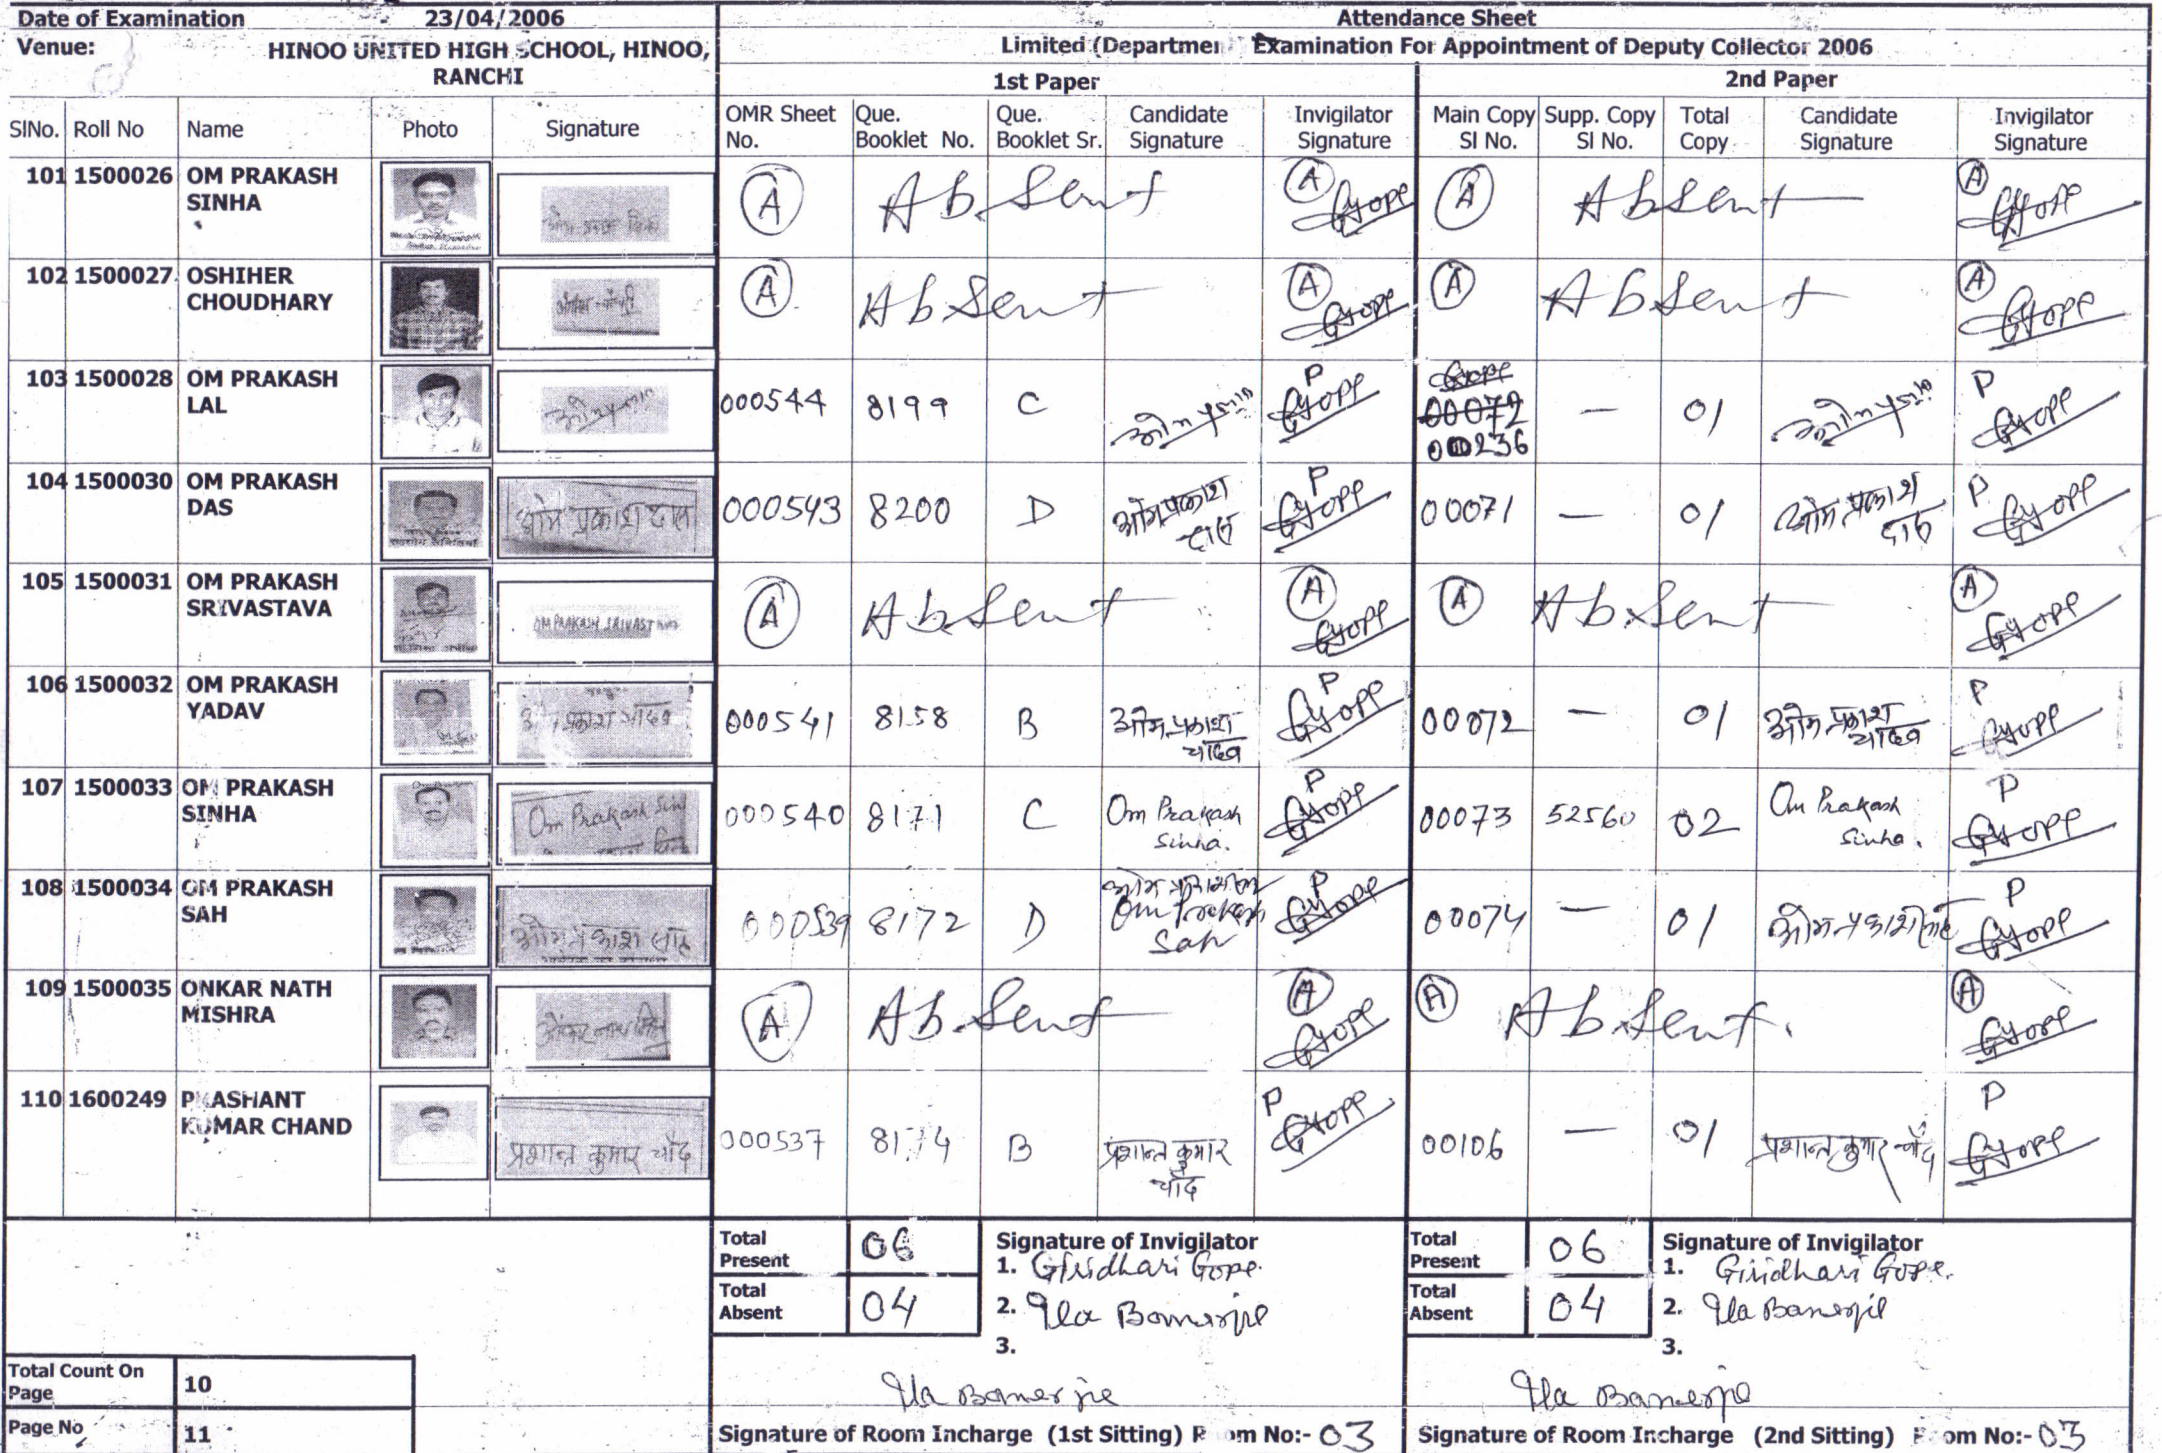 Date of Examination 23/04/2006 Attendance Sheet
Venue: HINOO UNITED HIGH SCHOOL, HINOO, RANCHI
Limited (Departmen Examination For Appointment of Deputy Collector 2006
1st Paper 2nd Paper
SlNo. Roll No Name Photo Signature OMR Sheet No. Que. Booklet No. Que. Booklet Sr. Candidate Signature Invigilator Signature Main Copy Sl No. Supp. Copy Sl No. Total Copy Candidate Signature Invigilator Signature
101 1500026 OM PRAKASH SINHA A Absent A Gope A Absent A Gope
102 1500027 OSHIHER CHOUDHARY A Absent A Gope A Absent A Gope
103 1500028 OM PRAKASH LAL 000544 8199 C P Gope Gope 00072 000236 — 01 P Gope
104 1500030 OM PRAKASH DAS ओम प्रकाश दास 000543 8200 D ओम प्रकाश दास P Gope 00071 — 01 ओम प्रकाश दास P Gope
105 1500031 OM PRAKASH SRIVASTAVA OM PRAKASH SRIVASTAVA A Absent A Gope A Absent A Gope
106 1500032 OM PRAKASH YADAV ओम प्रकाश यादव 000541 8158 B ओम प्रकाश यादव P Gope 00072 — 01 ओम प्रकाश यादव P Gope
107 1500033 OM PRAKASH SINHA Om Prakash Sin 000540 8171 C Om Prakash Sinha. P Gope 00073 52560 02 Om Prakash Sinha. P Gope
108 1500034 OM PRAKASH SAH ओम प्रकाश साह 000539 8172 D Om Prakash Sah P Gope 00074 — 01 ओम प्रकाश साह P Gope
109 1500035 ONKAR NATH MISHRA A Absent A Gope A Absent. A Gope
110 1600249 PRASHANT KUMAR CHAND प्रशान्त कुमार चाँद 000537 8174 B प्रशान्त कुमार चाँद P Gope 00106 — 01 प्रशान्त कुमार चाँद P Gope
Total Present 06 Signature of Invigilator Total Present 06 Signature of Invigilator
1. Giridhari Gope. 1. Giridhari Gope.
Total Absent 04 2. Ila Banerjie Total Absent 04 2. Ila Banerjie
3. 3.
Total Count On Page 10 Ila Banerjie Ila Banerjie
Page No 11 Signature of Room Incharge (1st Sitting) R om No:- 03 Signature of Room Incharge (2nd Sitting) R om No:- 03